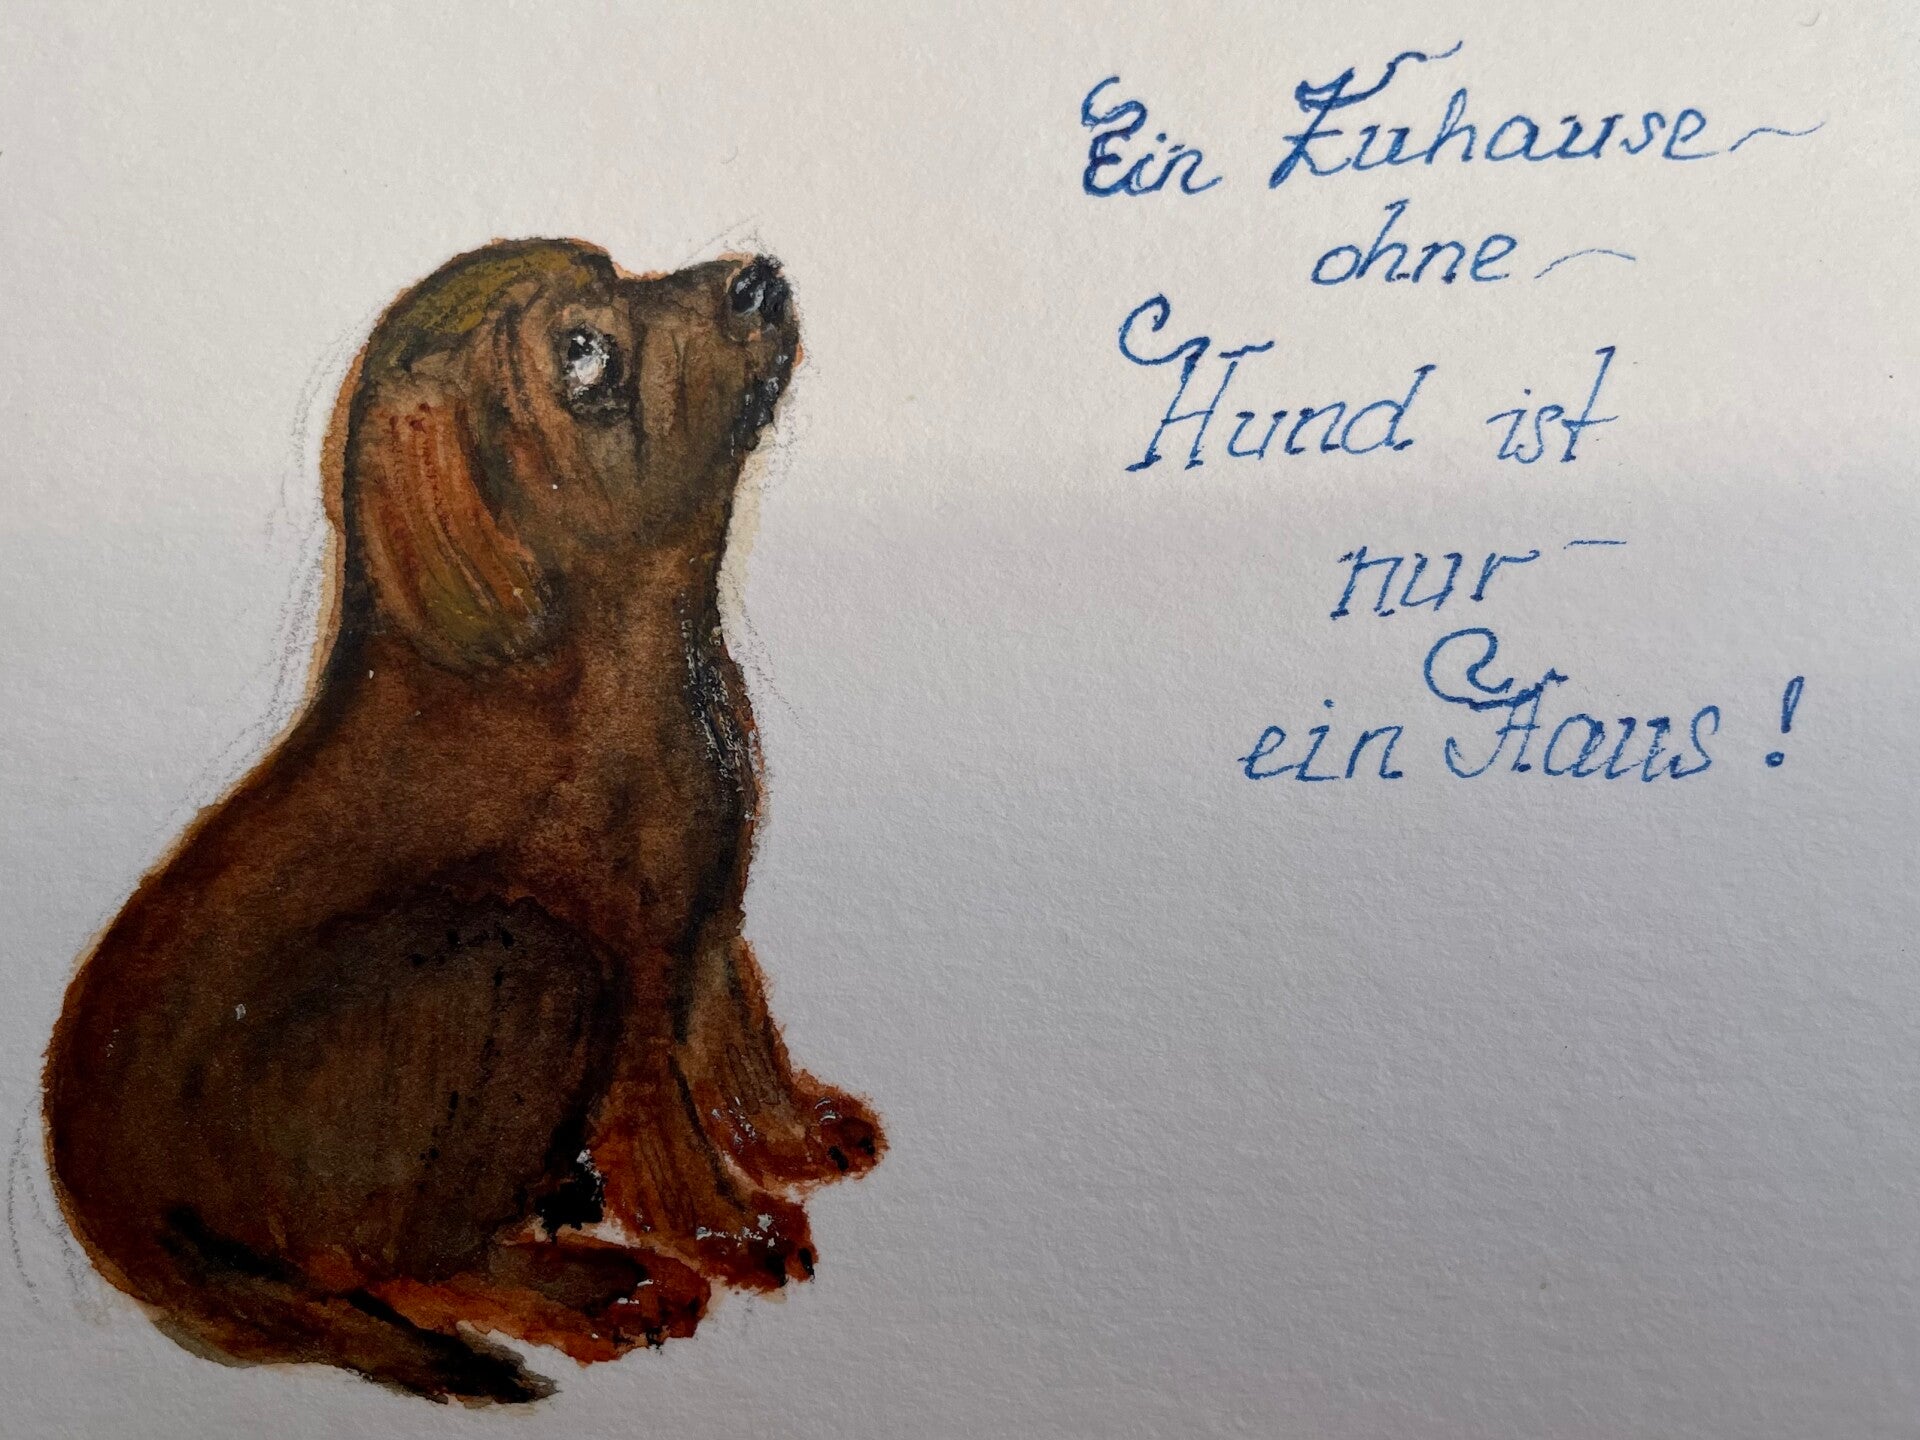 Ein Zuhause
ohne
Hund ist
nur
ein Haus!